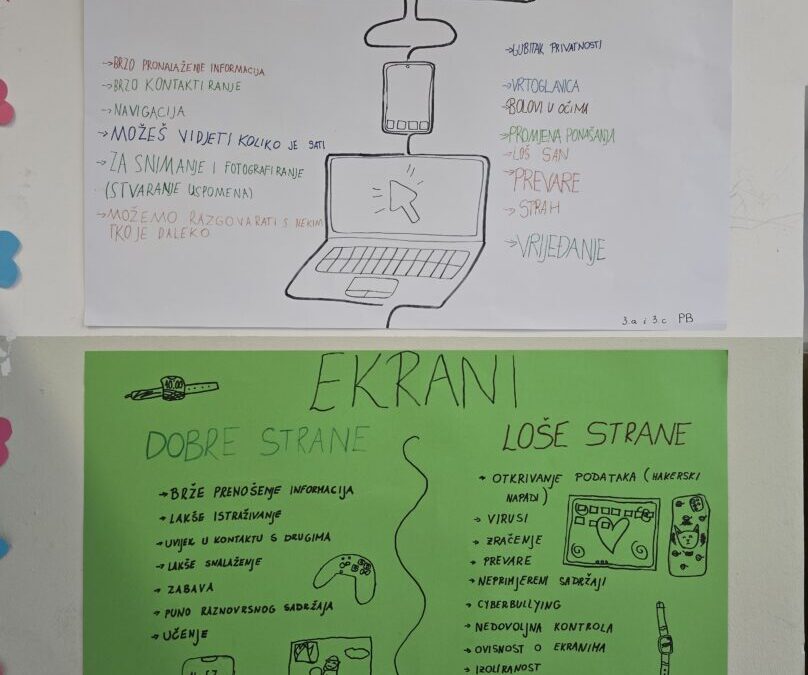 →BRZO PRONALAŽENJE INFORMACIJA
→BRZO KONTAKTIRANJE
→NAVIGACIJA
→MOŽEŠ VIDJETI KOLIKO JE SATI
→ZA SNIMANJE I FOTOGRAFIRANJE
(STVARANJE USPOMENA)
→MOŽEMO RAZGOVARATI S NEKIM
TKO JE DALEKO
→GUBITAK PRIVATNOSTI
→VRTOGLAVICA
→BOLOVI U OČIMA
→PROMJENA PONAŠANJA
→LOŠ SAN
→PREVARE
→STRAH
→VRIJEĐANJE
3.a i 3.c PB
10:00
EKRANI
DOBRE STRANE
→BRŽE PRENOŠENJE INFORMACIJA
→LAKŠE ISTRAŽIVANJE
→UVIJEK U KONTAKTU S DRUGIMA
→LAKŠE SNALAŽENJE
→ZABAVA
→PUNO RAZNOVRSNOG SADRŽAJA
→UČENJE
LOŠE STRANE
→OTKRIVANJE PODATAKA (HAKERSKI
NAPADI)
→VIRUSI
→ZRAČENJE
→PREVARE
→NEPRIMJERENI SADRŽAJI
→CYBERBULLYING
→NEDOVOLJNA KONTROLA
→OVISNOST O EKRANIMA
→IZOLIRANOST